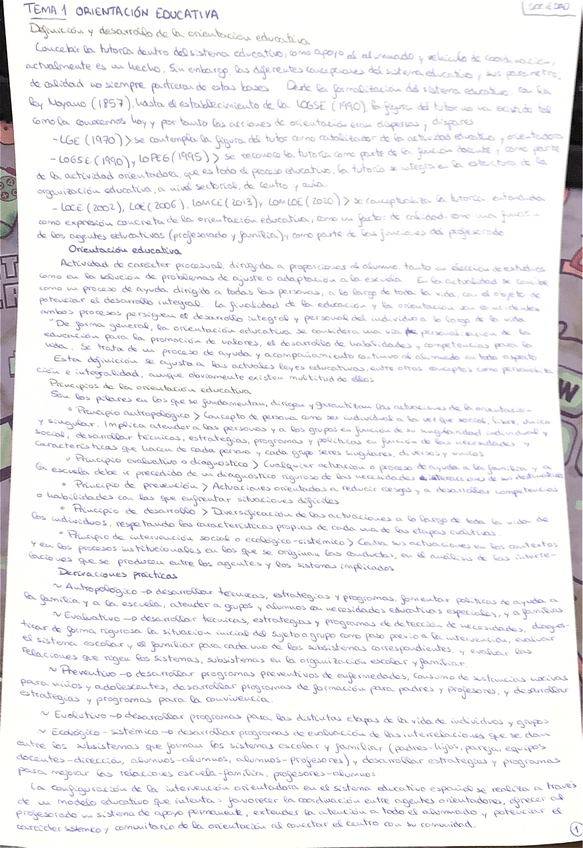 TEMA 1 ORIENTACIÓN EDUCATIVA
SOCIEDAD
Definición y desarrollo de la orientación educativa
Concebir la tutoría dentro del sistema educativo, como apoyo al alumnado y vehículo de coordinación,
actualmente es un hecho. Sin embargo, las diferentes concepciones del sistema educativo y sus parámetros
de calidad no siempre partieron de estas bases. Desde la formalización del sistema educativo con la
ley Moyano (1857), hasta el establecimiento de la LOGSE (1990), la figura del tutor no ha existido tal
como la conocemos hoy y por tanto las acciones de orientación eran dispersas y dispares
-LGE (1970) > se contempla la figura del tutor como catalizador de la actividad educativa y orientadora
-LOGSE (1990), LOPEG (1995) > se reconoce la tutoría como parte de la función docente, y como parte
de la actividad orientadora, que es todo el proceso educativo, la tutoría se integra en la estructura de la
organización educativa, a nivel sectorial, de centro y aula
-LOCE (2002), LOE (2006), LOMCE (2013), LOMLOE (2020) > se conceptualiza la tutoría entendida
como expresión concreta de la orientación educativa, como un factor de calidad, como una función
de los agentes educativos (profesorado y familia), y como parte de las funciones del profesorado
Orientación educativa
Actividad de carácter procesual, dirigida a proporcionar al alumno, tanto en elección de estudios
como en la solución de problemas de ajuste o adaptación a la escuela. En la actualidad se concibe
como un proceso de ayuda dirigido a todas las personas, a lo largo de toda la vida, con el objeto de
potenciar el desarrollo integral. La finalidad de la educación y la orientación son coincidentes
ambos procesos persiguen el desarrollo integral y personal del individuo a lo largo de la vida
"De forma general, la orientación educativa se considera una vía de personalización de la
educación para la promoción de valores, el desarrollo de habilidades y competencias para la
vida. Se trata de un proceso de ayuda y acompañamiento continuo al alumnado en todo aspecto
Esta definición se ajusta a las actuales leyes educativas, entre otros conceptos como personaliza-
ción e integralidad, aunque obviamente existen multitud de ellos
Principios de la orientación educativa
Son los pilares en los que se fundamentan, dirigen y garantizan las actuaciones de la orientación
• Principio antropológico > Concepto de persona como ser individual a la vez que social, libre, único
y singular. Implica atender a las personas y a los grupos en función de su singularidad individual y
social, desarrollar técnicas, estrategias, programas y políticas en función de las necesidades y
características que hacen de cada persona y cada grupo seres singulares, diversos y únicos
• Principio evaluativo o diagnóstico > Cualquier actuación o proceso de ayuda a la familia y a
la escuela debe ir precedido de un diagnóstico riguroso de las necesidades de sus destinatarios
• Principio de prevención > Actuaciones orientadas a reducir riesgos y a desarrollar competencias
o habilidades con las que enfrentar situaciones difíciles
• Principio de desarrollo > Diversificación de las actuaciones a lo largo de toda la vida de
los individuos, respetando las características propias de cada una de las etapas evolutivas.
• Principio de intervención social o ecológico-sistémico > Centra sus actuaciones en los contextos
y en los procesos institucionales en los que se originan las conductas, en el análisis de las interre-
laciones que se producen entre los agentes y los sistemas implicados
Derivaciones prácticas
~ Antropológico → desarrollar técnicas, estrategias y programas, fomentar políticas de ayuda a
la familia, y a la escuela, atender a grupos y alumnos con necesidades educativas especiales, y a familias
~ Evaluativo → desarrollar técnicas, estrategias y programas de detección de necesidades, diagnos-
ticar de forma rigurosa la situación inicial del sujeto o grupo como paso previo a la intervención, evaluar
el sistema escolar y el familiar para cada uno de los subsistemas correspondientes, y evaluar las
relaciones que rigen los sistemas, subsistemas en la organización escolar y familiar.
~ Preventivo → desarrollar programas preventivos de enfermedades, consumo de sustancias nocivas
para niños y adolescentes, desarrollar programas de formación para padres y profesores, y desarrollar
estrategias y programas para la convivencia.
~ Evolutivo → desarrollar programas para las distintas etapas de la vida de individuos y grupos
~ Ecológico-sistémico → desarrollar programas de evaluación de las interrelaciones que se dan
entre los subsistemas que forman los sistemas escolar y familiar (padres-hijos, pareja, equipos
docentes-dirección, alumnos-alumnos, alumnos-profesores) y desarrollar estrategias y programas
para mejorar las relaciones escuela-familia, profesores-alumnos
La configuración de la intervención orientadora en el sistema educativo español se realiza a través
de un modelo educativo que intenta: favorecer la coordinación entre agentes orientadores, ofrecer al
profesorado un sistema de apoyo permanente, extender la atención a todo el alumnado y potenciar el
carácter sistémico y comunitario de la orientación al conectar el centro con su comunidad.
1